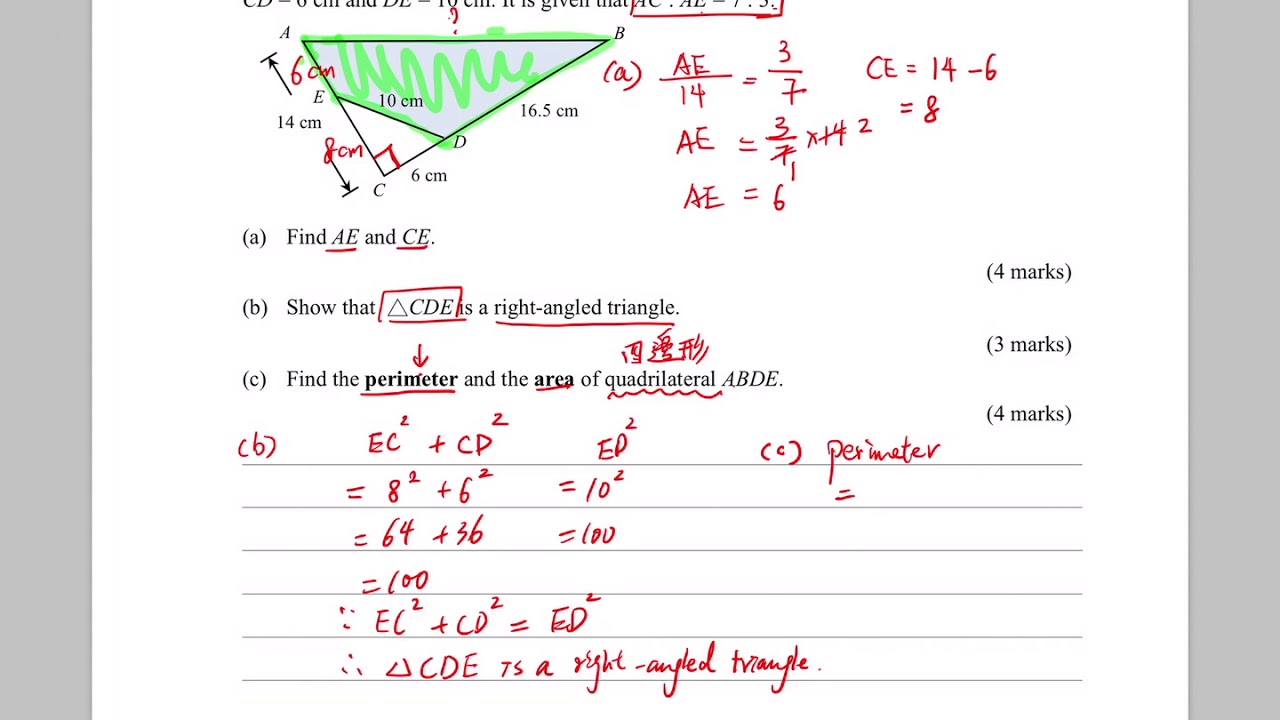 CD = 6 cm and DE = 10 cm. It is given that AC : AE = 7 : 3.
?
A
B
6cm
E
10 cm
16.5 cm
14 cm
D
8cm
6 cm
C
(a) AE/14 = 3/7
AE = 3/7 × 14 2
1
AE = 6
CE = 14 - 6
= 8
(a) Find AE and CE.
(4 marks)
(b) Show that △CDE is a right-angled triangle.
(3 marks)
四邊形
(c) Find the perimeter and the area of quadrilateral ABDE.
(4 marks)
(b) EC² + CD² ED²
= 8² + 6² = 10²
= 64 + 36 = 100
= 100
∵ EC² + CD² = ED²
∴ △CDE is a right-angled triangle.
(c) perimeter
=